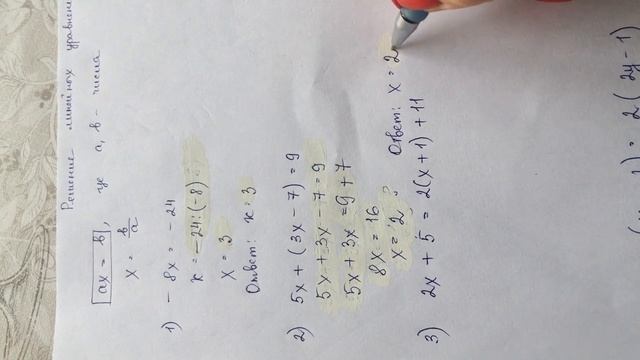 Решение линейных уравнен
ax = b, где a, b – числа
x = b/a
1) - 8x = - 24
x = -24:(-8)
x = 3
Ответ: x = 3
2) 5x + (3x - 7) = 9
5x + 3x - 7 = 9
5x + 3x = 9 + 7
8x = 16
x = 2
Ответ: x = 2
3) 2x + 5 = 2(x + 1) + 11
) = 2(2y - 1)